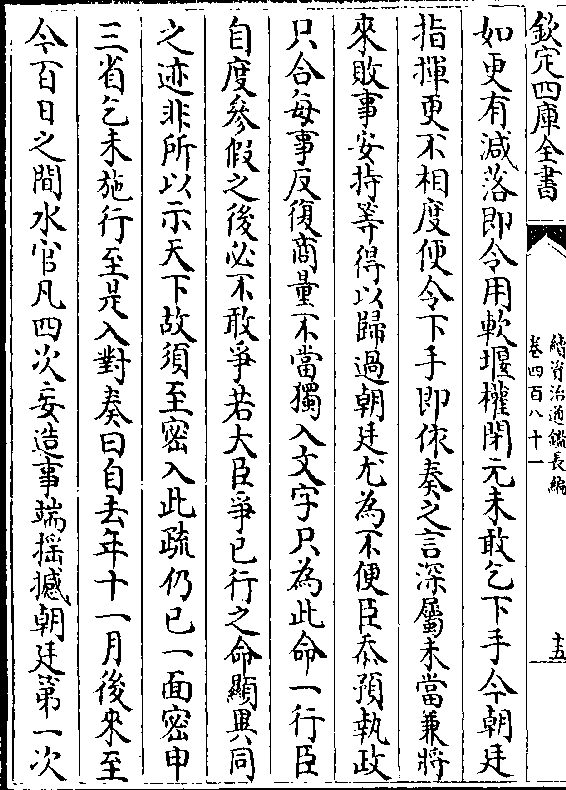 欽定四庫全書
續資治通鑑長編
卷四百八十一
十五
如更有減落即令用軟堰權閉元未敢乞下手今朝廷
指揮更不相度便令下手即依奏之言深屬未當兼將
來敗事安持等得以歸過朝廷尤為不便臣忝預執政
只合每事反復商量不當獨入文字只為此命一行臣
自度參假之後必不敢爭若大臣爭已行之命顯異同
之迹非所以示天下故須至密入此疏仍已一面密申
三省乞未施行至是入對奏曰自去年十一月後來至
今百日之間水官凡四次妄造事端揺撼朝廷第一次